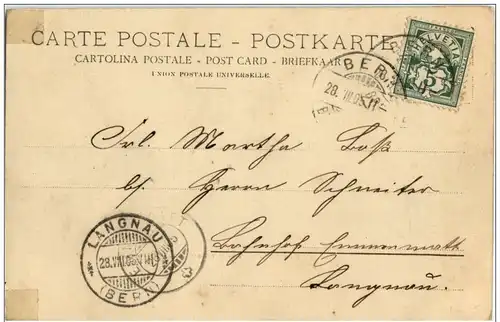 CARTE POSTALE - POSTKARTE
CARTOLINA POSTALE - POST CARD - BRIEFKAART
UNION POSTALE UNIVERSELLE.
HELVETIA
5
BERN
28. VII
Frl. Martha
bei Herrn Schneiter
Bahnhof Emmenmatt
Langnau.
LANGNAU
28. VIII. 05
(BERN)